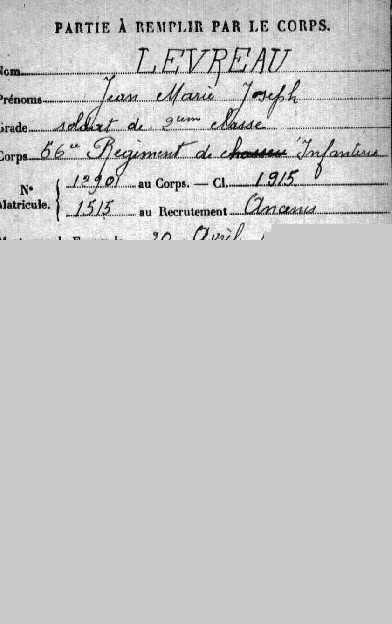 PARTIE À REMPLIR PAR LE CORPS.
Nom LEVREAU
Prénoms Jean Marie Joseph
Grade soldat de 2eme classe
Corps 56e Régiment de chasseu Infanterie
N° Matricule. 12901 au Corps. — Cl. 1915
1515 au Recrutement Ancenis
20 Avril